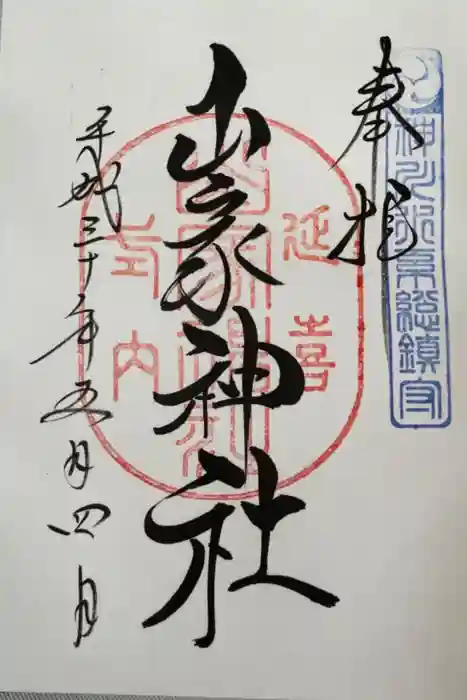 神川水系總鎮守
奉拝
延喜
山家神社
山家神社
式内
平成三十年五月四日